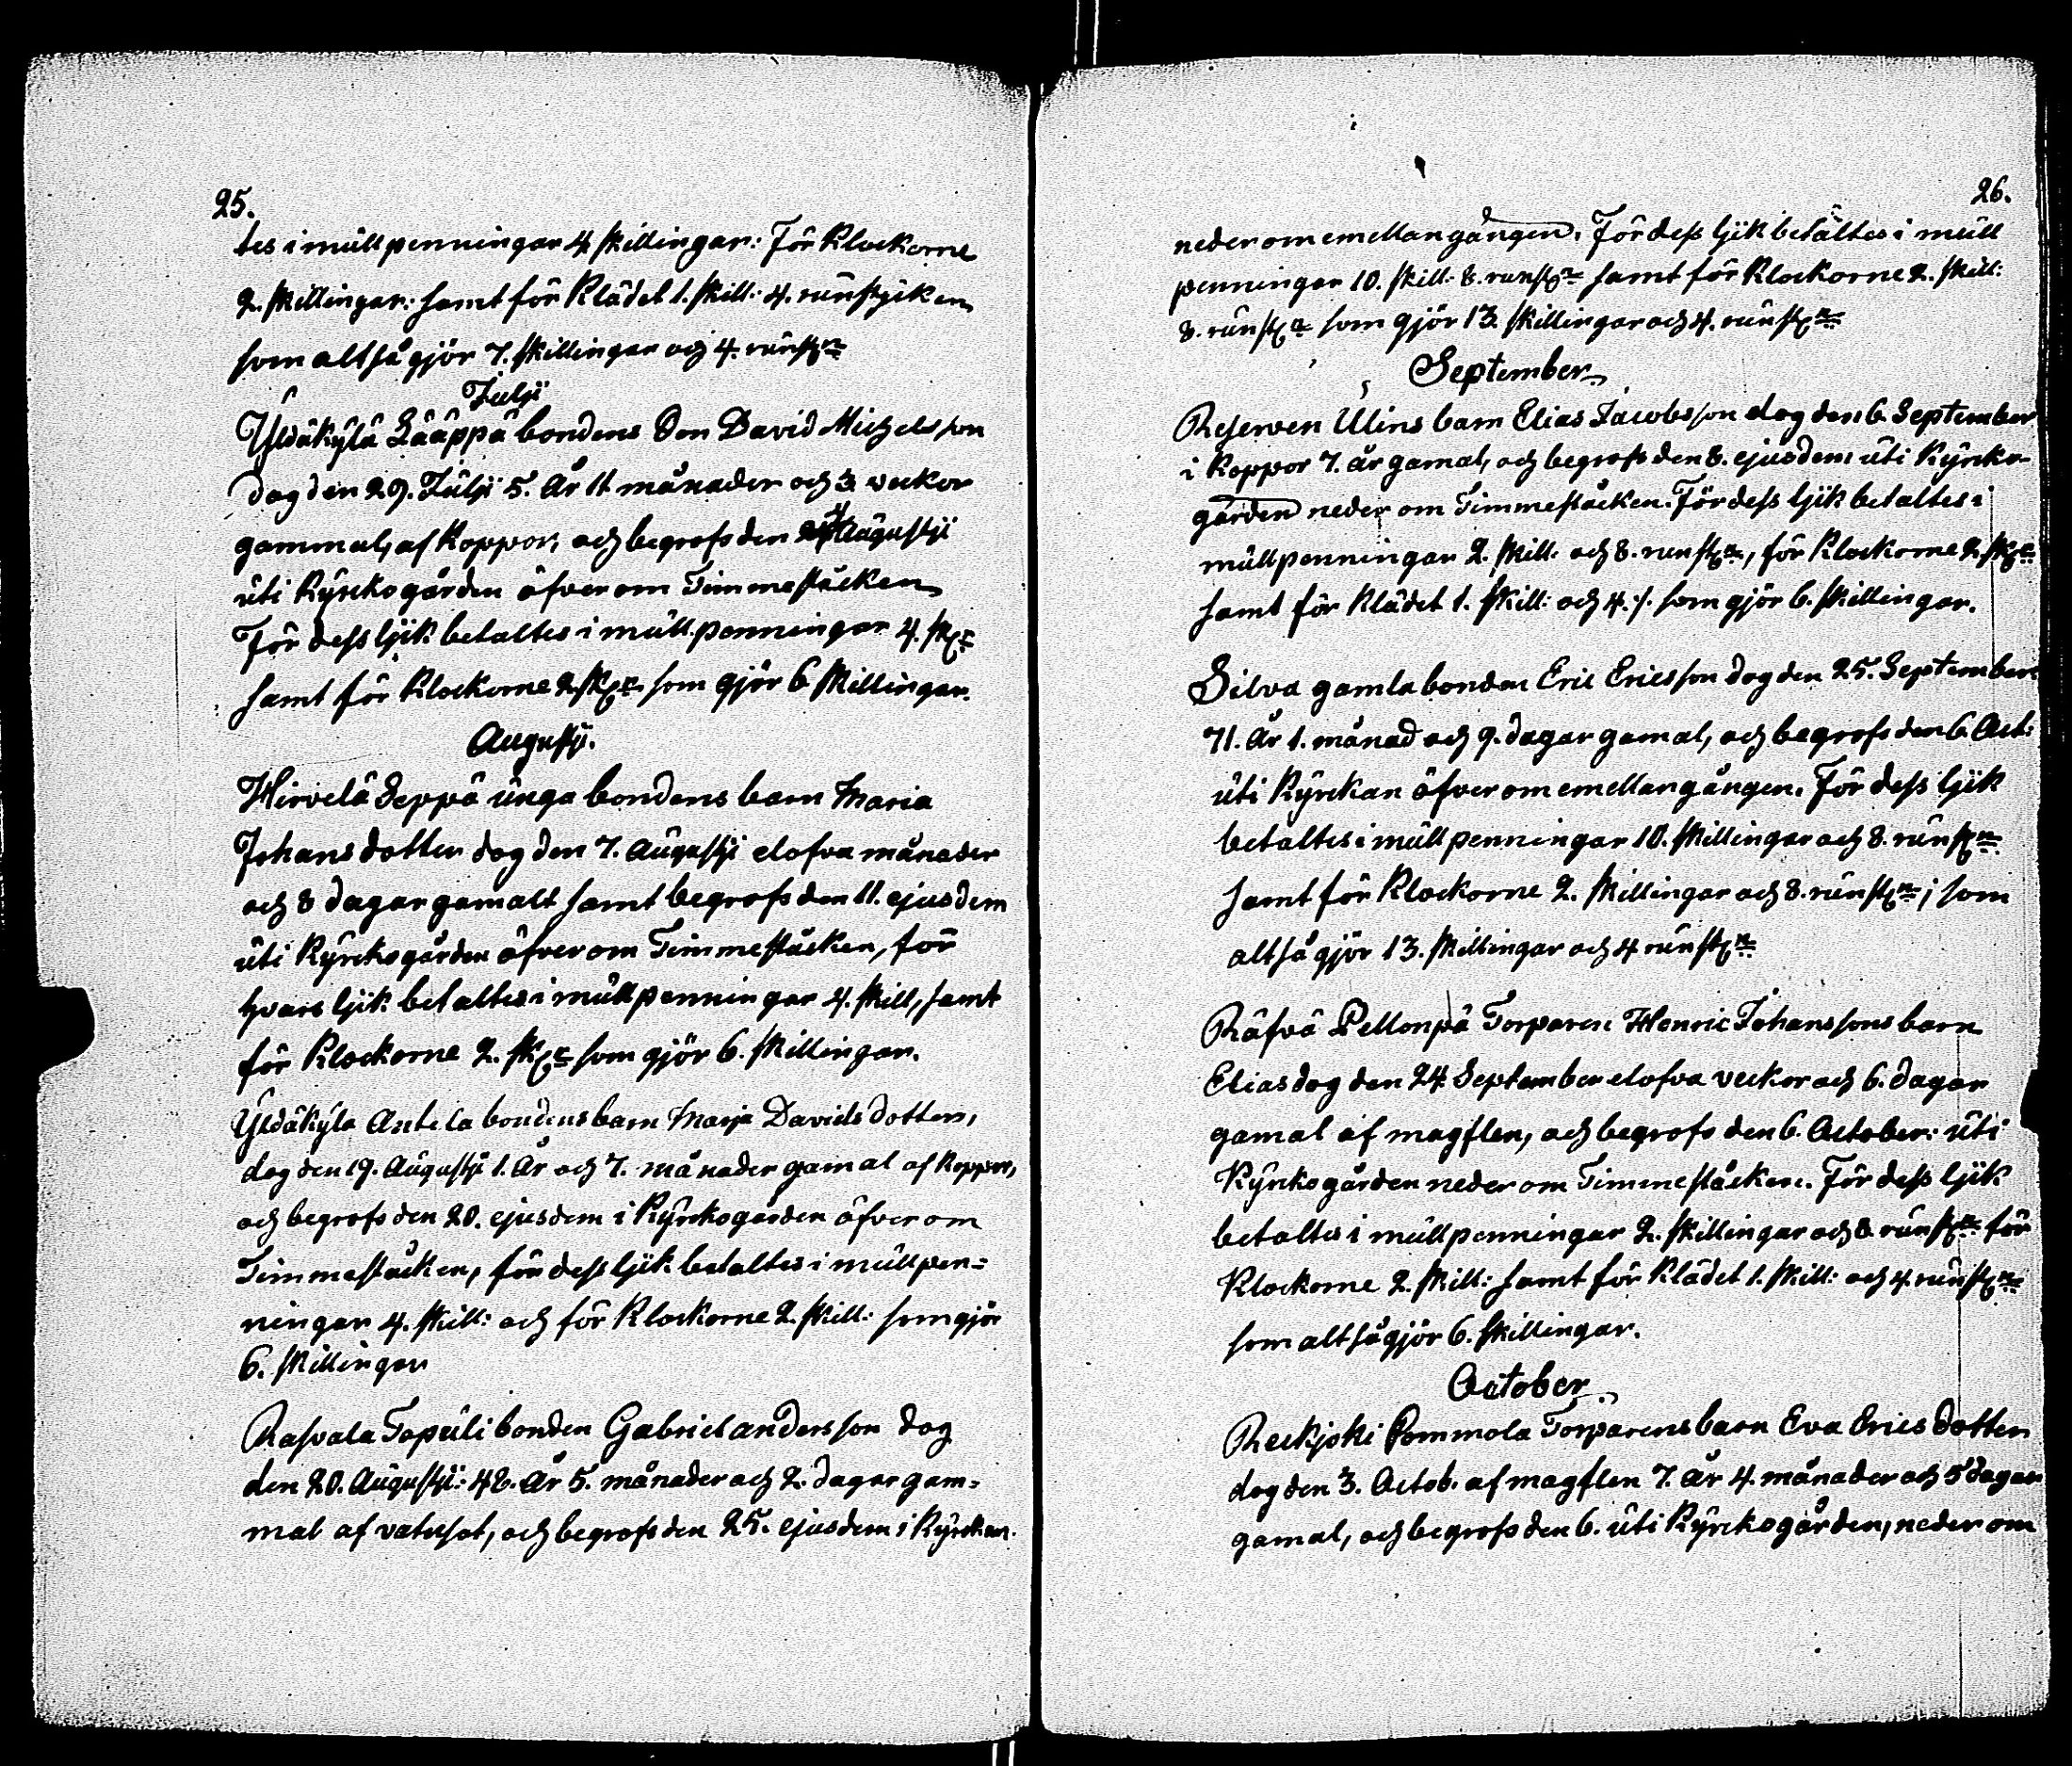 25.
tes i mull penningar 4 skillingar: För Klockorne
2. skillingar: samt för Klädet 1. skill: 4. runstÿken
som altså gjör 7. skillingar och 4. runstÿn
Julÿi
Yldäkylä Lääppä bondens Son David Michelsson
dog den 29. Julÿi 5. År 11 månader och 3 veckor
gammal, af Koppor, och begrofs den Augustÿi
uti Kyrckogården öfver om Timmestäcken
För dess ljik betaltes i mull penningar 4. skr
samt för Klockorne 2 skr som gjör 6 skillingar.
Augustÿ.
Hirvelä Seppä unga bondens barn Maria
Johansdotter dog den 7. Augustÿi elofva månader
och 8 dagar gamalt samt begrofs den 11. ejusdem
uti Kyrckogården öfver om Timmestäcken, för
hvars ljik betaltes i mull penningar 4. skill, samt
för Klockorne 2. skr som gjör 6. skillingar.
Yldäkyla Antela bondens barn Marja Davidsdotter,
dog den 19. Augustÿi 1. År och 7. månader gamal af Koppor,
och begrofs den 20. ejusdem i Kyrckogården öfver om
Timmestäcken, för dess ljik betaltes i mullpen=
ningar 4. skill: och för Klockorne 2. skill: som gjör
6. skillingar
Rasvala Tapuli bonden Gabriel andersson dog
den 20. Augustÿi: 48. År 5. månader och 2. dagar gam=
mal af vatusot, och begrofs den 25. ejusdem i Kyrckan.
26.
neder om emellangången. För dess ljik betältes i mull
penningar 10. skill: 8. runstn samt för Klockorne 2. skill:
8. runstn som gjör 13. skillingar och 4. runstn
September
Reserven Ulins barn Elias Jacobsson dog den 6. September
i Koppor 7. år gamal, och begrofs den 8. ejusdem uti Kyrcko-
gården neder om Timmestäcken. För dess ljik betaltes i
mullpenningar 2. skill. och 8. runstn, för Klockorne 2. skr
samt för Klädet 1. skill: och 4. :/. som gjör 6. skillingar.
Silva gamla bonden Eric Ericsson dog den 25. September
71. År 1. månad och 9. dagar gamal, och begrofs den 6. Oct:
uti Kyrckan öfver om emellangången. För dess ljik
betaltes i mull penningar 10. skillingar och 8. runstn
samt för Klockorne 2. skillingar och 8. runstn; som
altså gjör 13. skillingar och 4 runstn
Räfvä Pellonpä Torparen Henric Johanssons barn
Elias dog den 24 September elofva veckor och 6. dagar
gamal af magflen, och begrofs den 6. October: uti
Kyrckogården neder om Timmestäcken. För dess ljik
betaltes i mullpenningar 2. skillingar och 8. runstn för
Klockorne 2. skill: samt för Klädet 1. skill: och 4. runstn
som altså gjör 6. skillingar.
October
Reckjoki Pommola Torparens barn Eva Ericsdotter
dog den 3. Octob. af magflen 7. År 4. månader och 5 dagar
gamal, och begrofs den 6. uti Kyrckogården, neder om